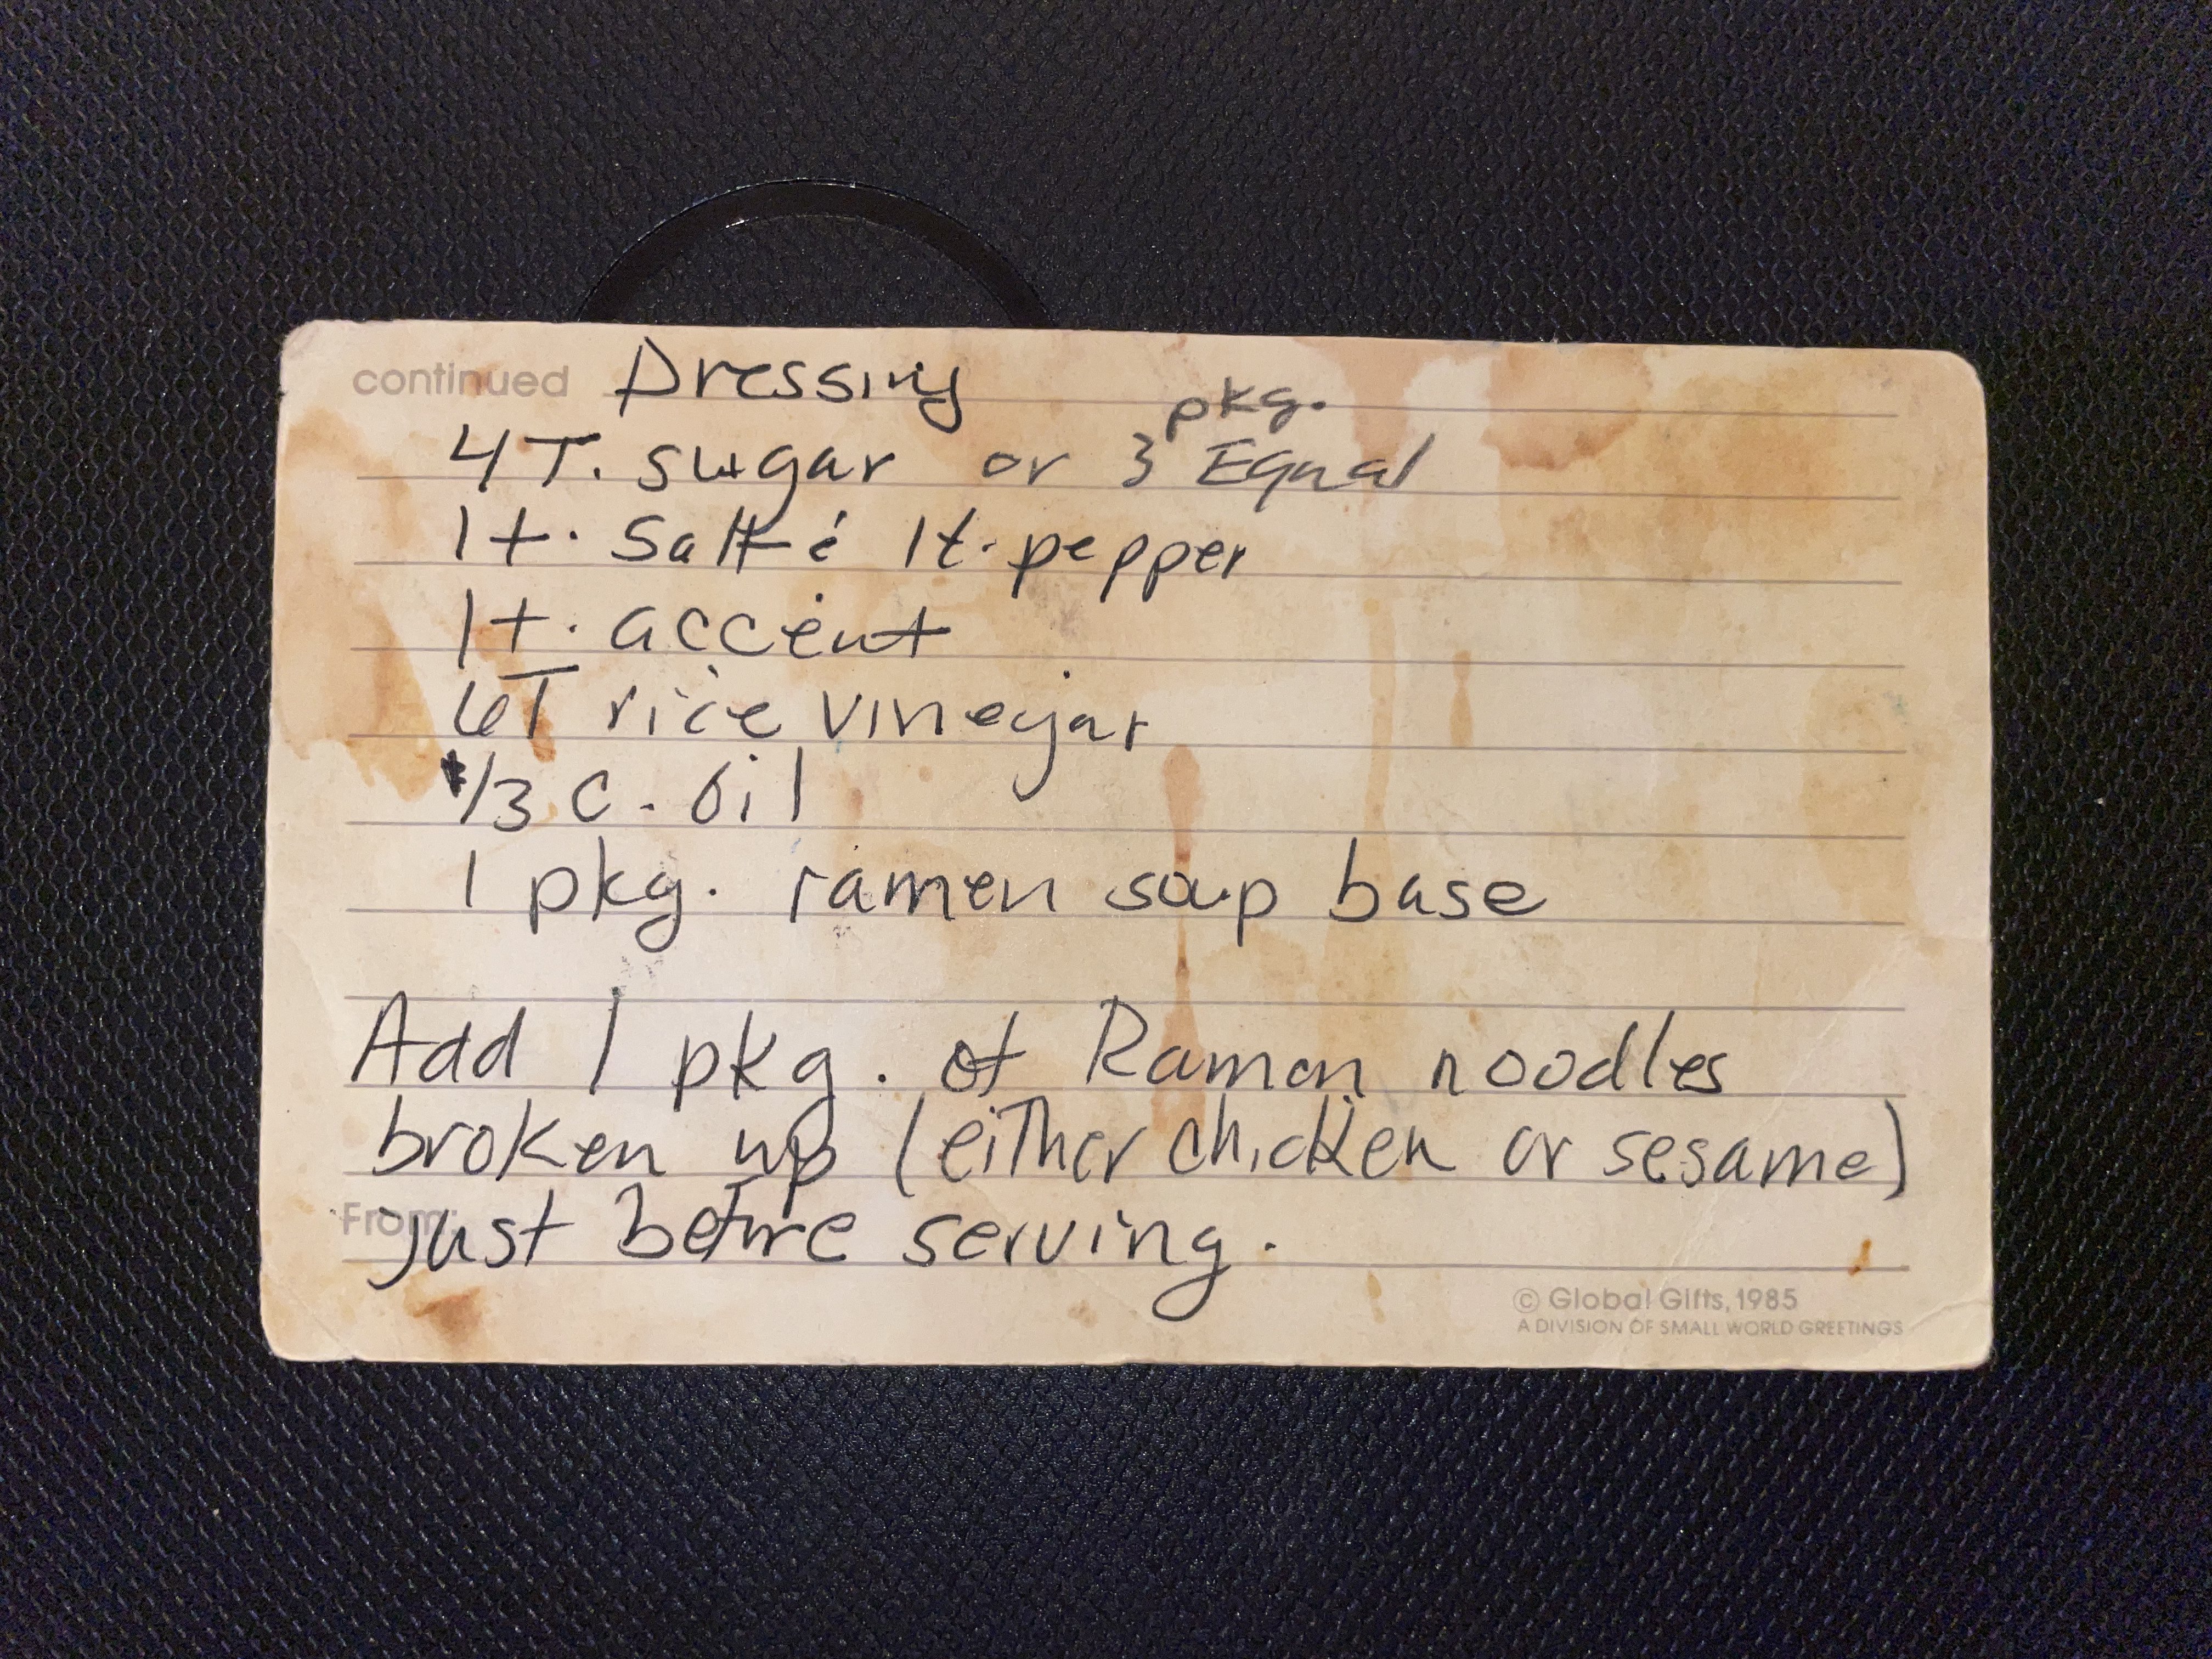 continued Dressing
pkg.
4 T. sugar or 3 Equal
1 t. Salt & 1 t. pepper
1 t. accent
6 T rice vinegar
1/3 c. oil
1 pkg. ramen soup base
Add 1 pkg. of Ramen noodles
broken up (either chicken or sesame)
From:
just before serving.
© Global Gifts, 1985
A DIVISION OF SMALL WORLD GREETINGS